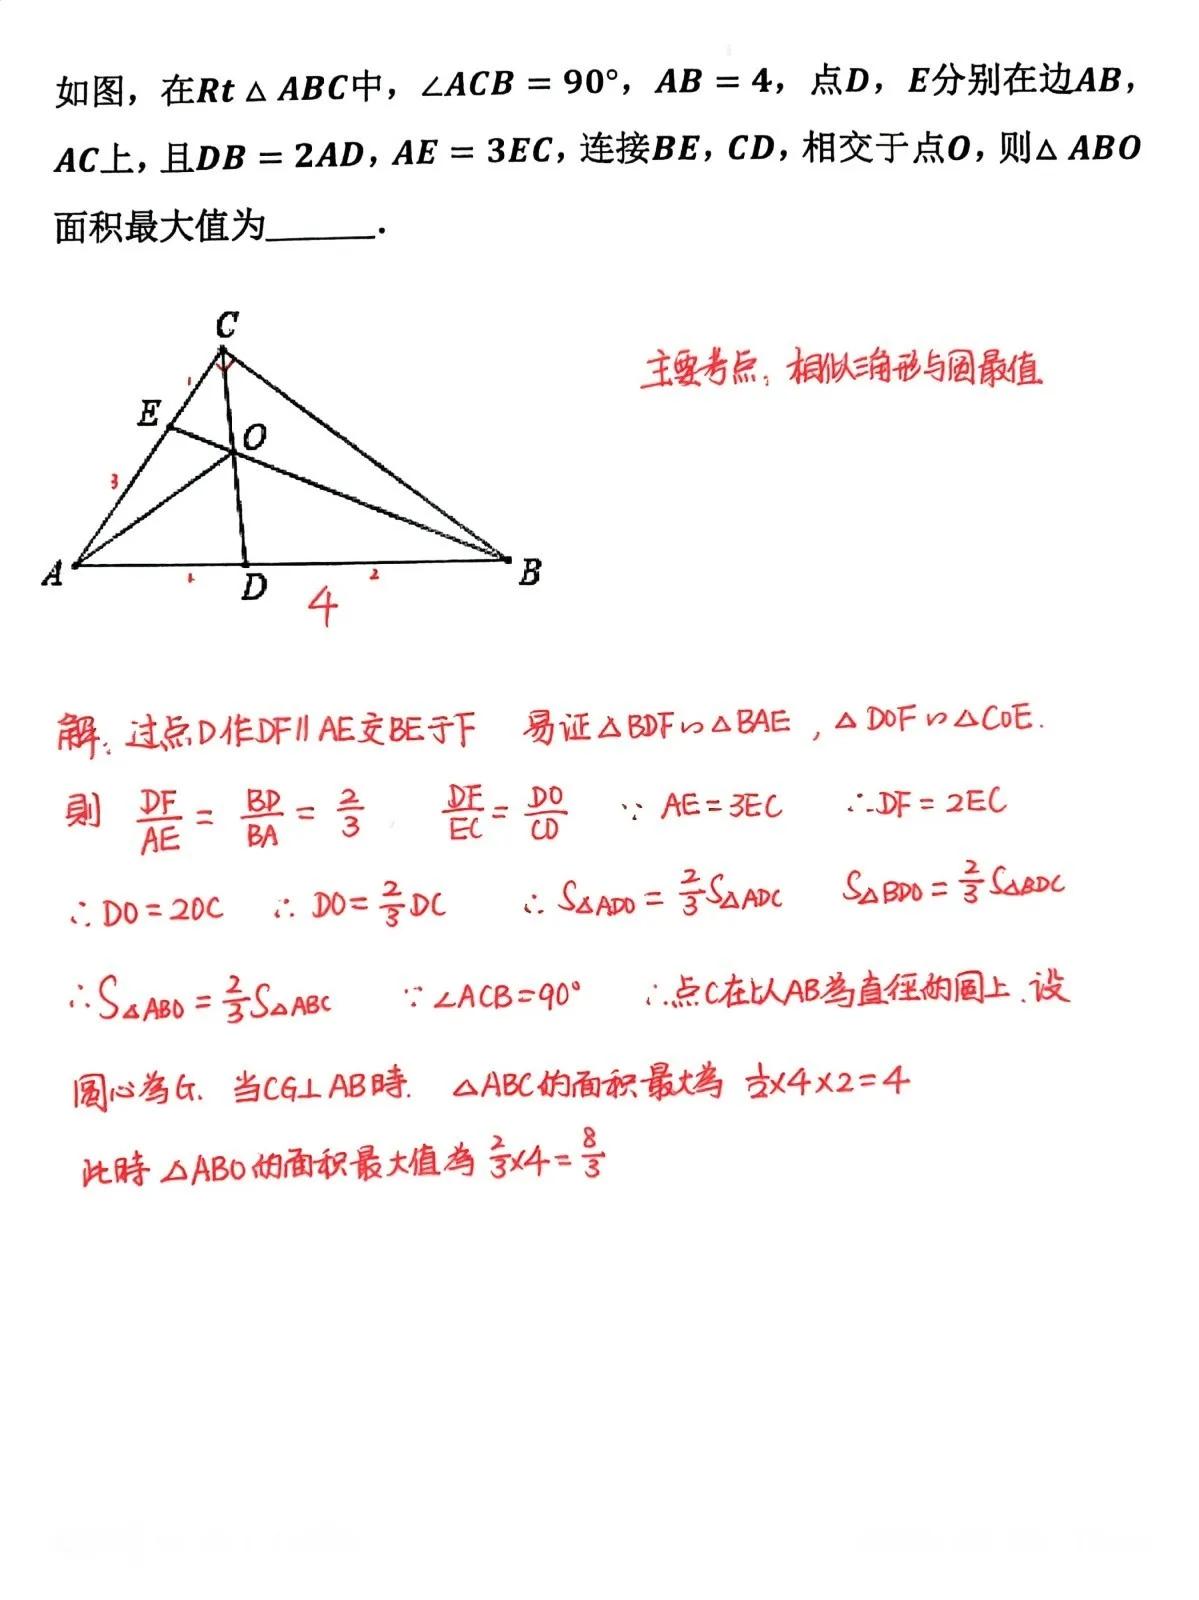 如图，在Rt △ ABC中，∠ACB = 90°，AB = 4，点D，E分别在边AB，
AC上，且DB = 2AD，AE = 3EC，连接BE，CD，相交于点O，则△ ABO
面积最大值为______.
C
主要考点：相似三角形与圆最值
1
E
O
3
A
1
D
2
B
4
解：过点D作DF∥AE交BE于F 易证△BDF∽△BAE，△DOF∽△COE.
則 DF/AE = BD/BA = 2/3 DF/EC = DO/CD ∵ AE=3EC ∴DF=2EC
∴DO=2OC ∴ DO=2/3DC ∴ S△ADO = 2/3S△ADC S△BDO = 2/3S△BDC
∴S△ABO = 2/3S△ABC ∵ ∠ACB=90° ∴点C在以AB為直径的圆上.设
圆心為G. 当CG⊥AB時. △ABC的面积最大為 1/2×4×2=4
此時 △ABO的面积最大值為 2/3×4=8/3